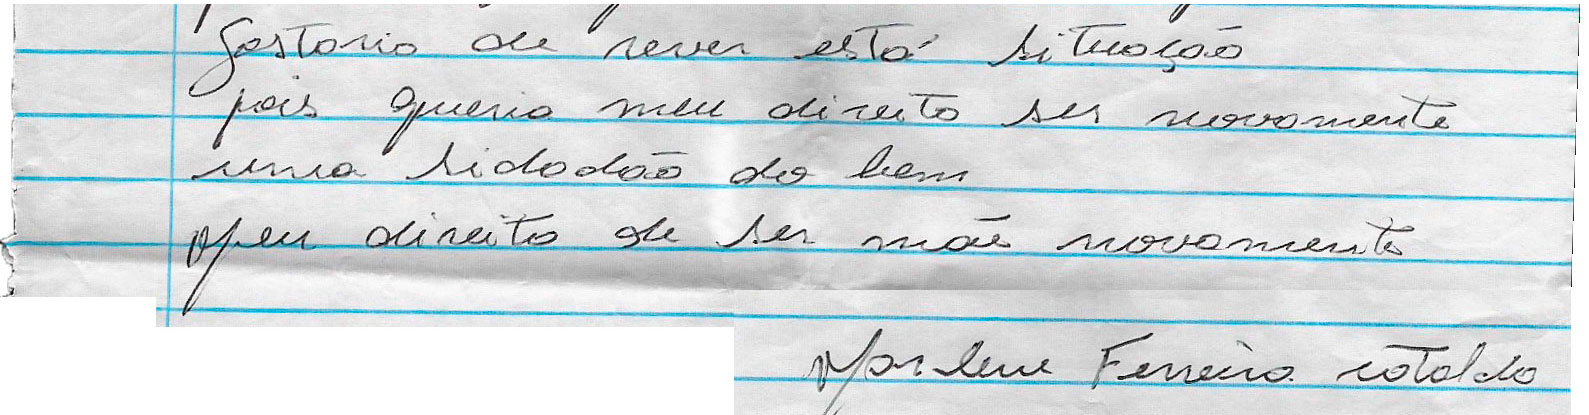 Gostaria de rever está situação
pois queria meu direito ser novamente
uma sidadão do bem
Meu direito de ser mãe novamente
Marlene Ferreira cataldo